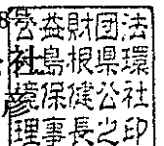 8号
公益財団法
社
島根県環
境保健公社
彦
理事長之印